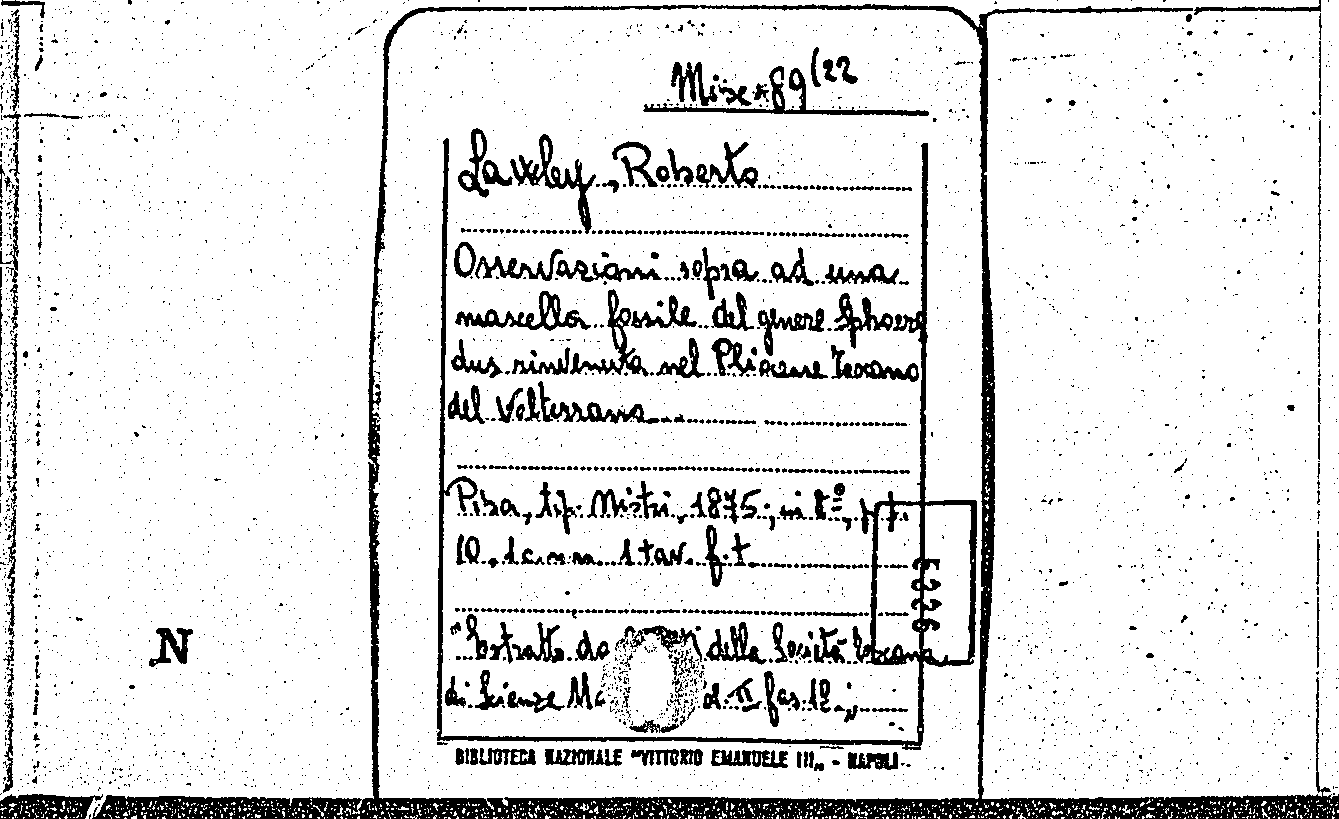 Misc * 89 (22
Lawley, Roberto
Osservazioni sopra ad una
mascella fossile del genere Sphaero
dus rinvenuta nel Pliocene Toscano
del Volterrano
Pisa, tip. Nistri, 1875; in 8º, pp.
10. 1 c. 1 tav. f.t.
5226
"Estratto da della Società Toscana
di Scienze II fas. 1º"
N
BIBLIOTECA NAZIONALE "VITTORIO EMANUELE III„ - NAPOLI